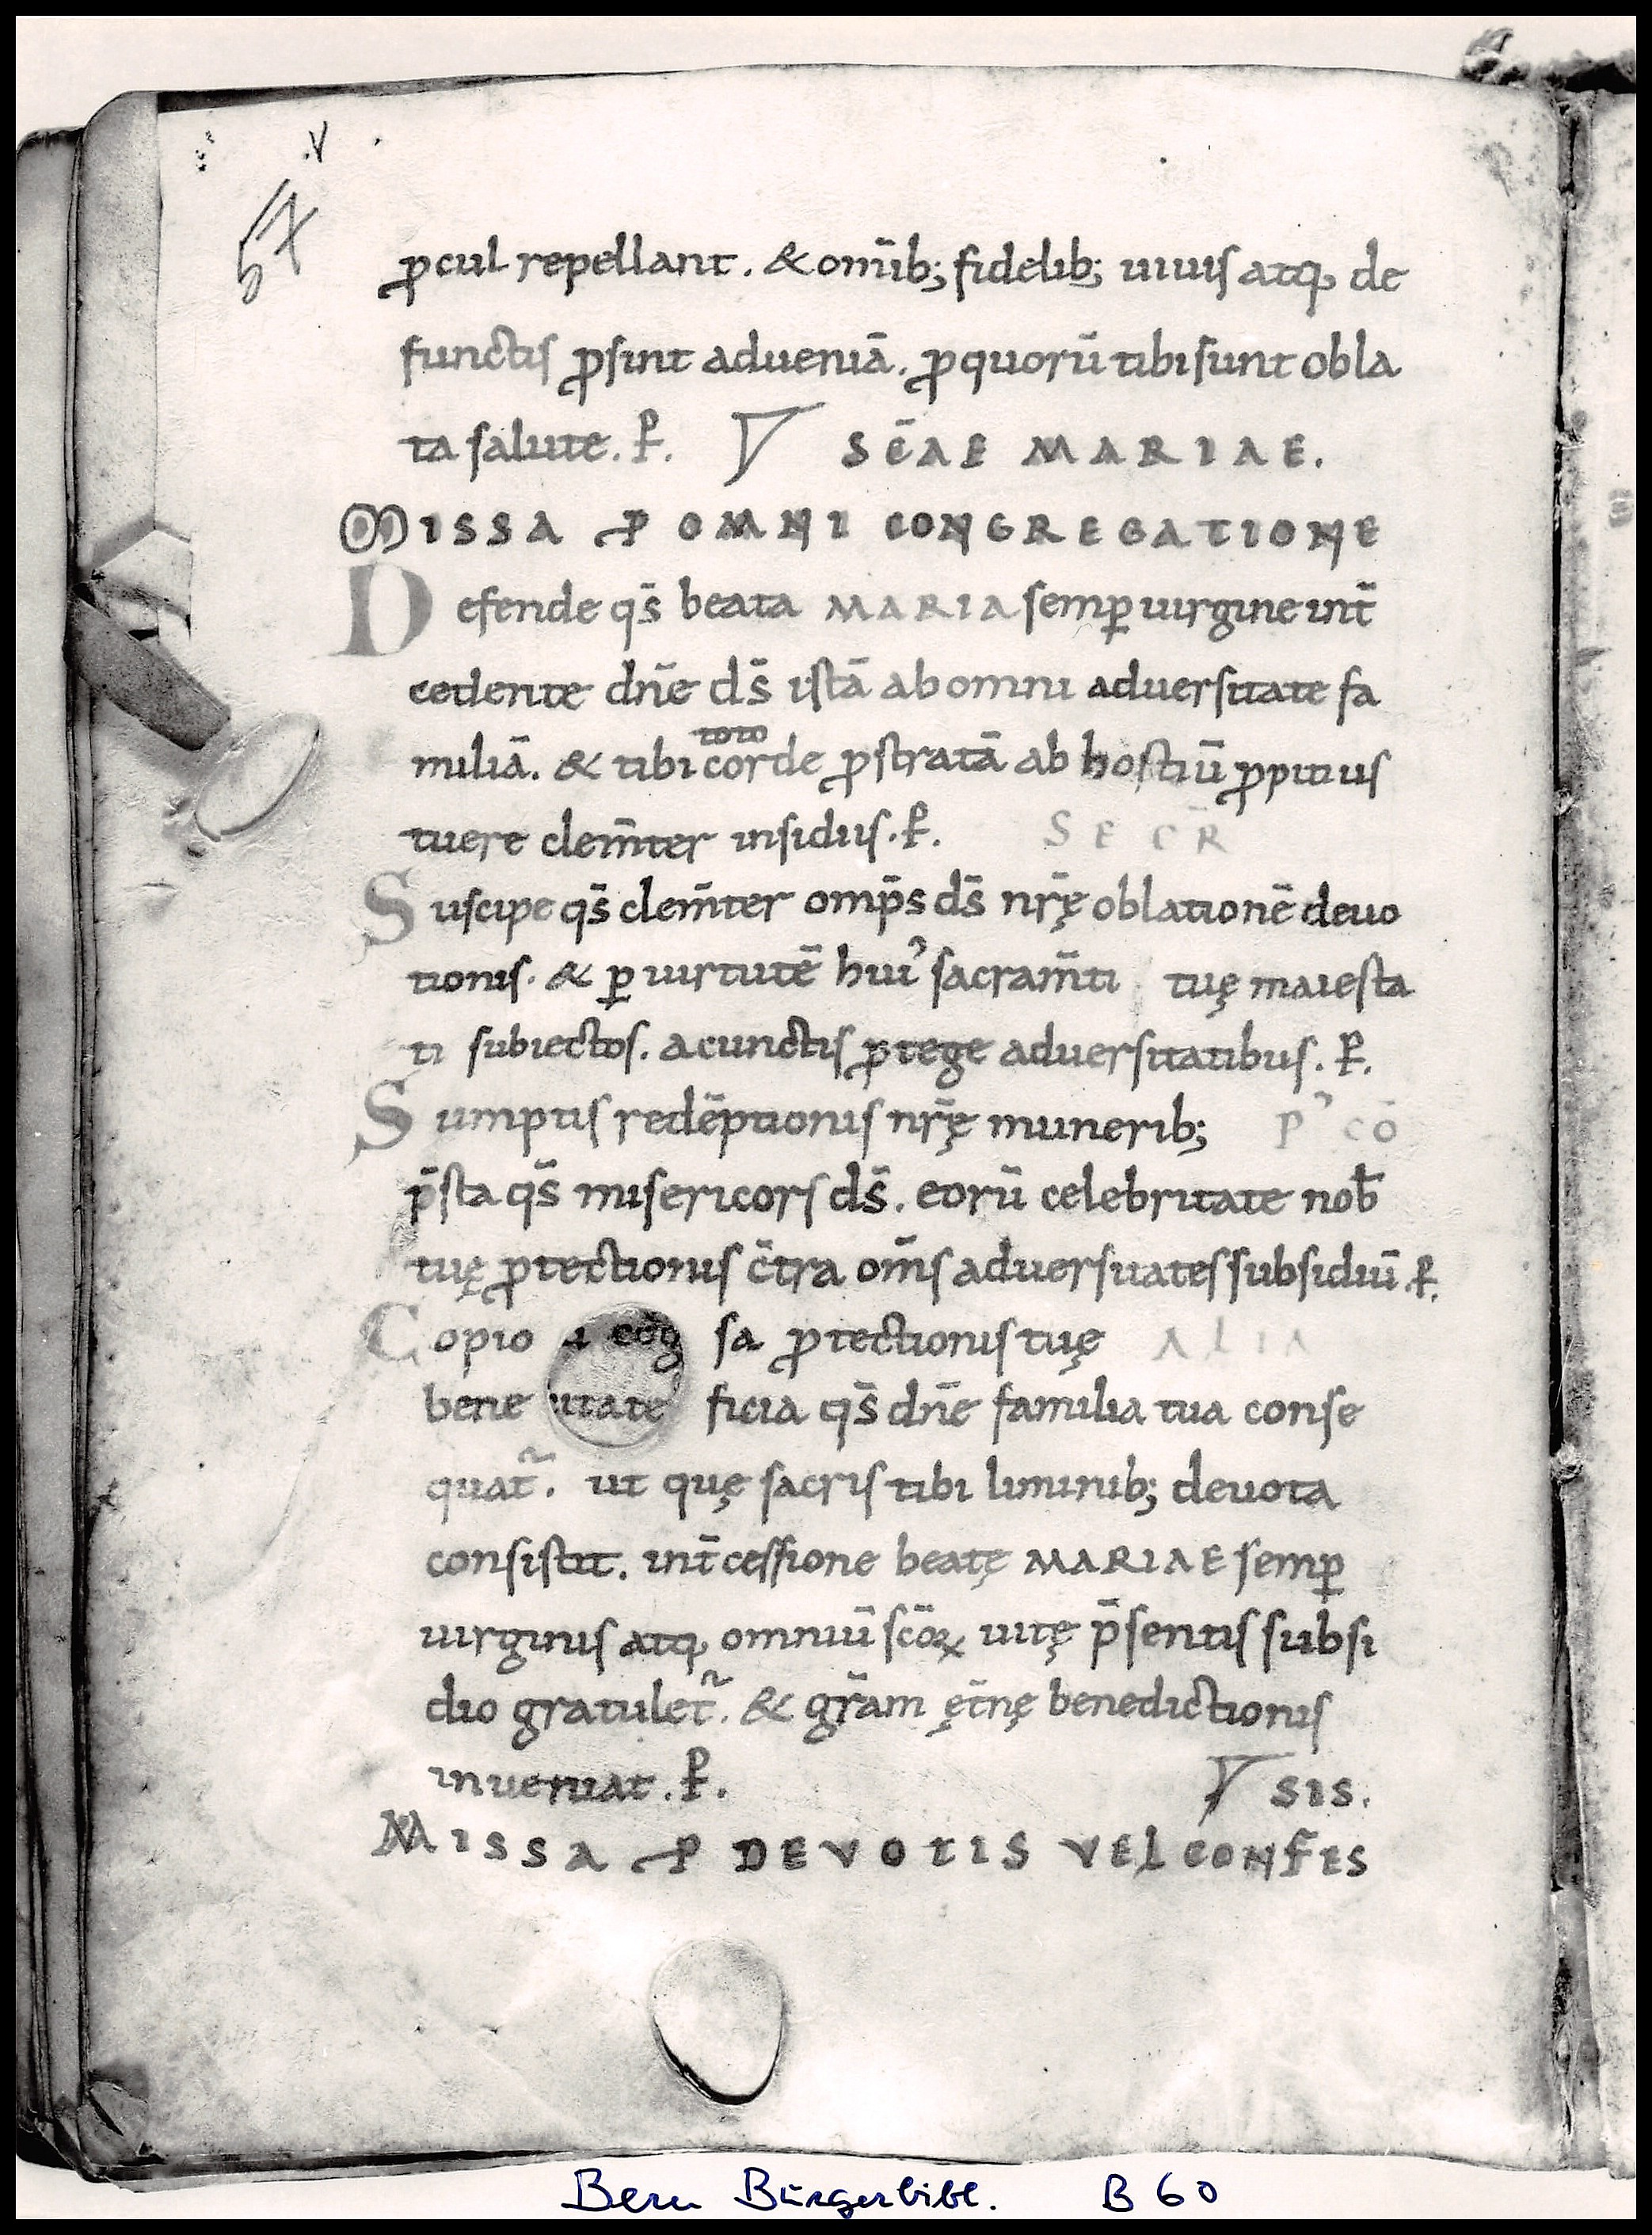 .v
57
ꝓcul repellant. & om̄ib; fidelib; uiuis atq, de
functis ꝓsint adueniā. ꝓ quorū tibi sunt obla
ta salute. P̄. V SC̄AE MARIAE.
MISSA ꝓ OMNI CONGREGATIONE
Defende qs̄ beata MARIA semꝑ uirgine int̄
cedente dn̄e ds̄ istā ab omni aduersitate fa
toto
miliā. & tibi corde ꝓstratā ab hostiū ꝓpitius
tuere clem̄ter insidiis. P̄. SECR̄
Suscipe qs̄ clem̄ter omp̄s ds̄ nr̄ę oblationē deuo
tionis. & ꝑ uirtutē hui᾽ sacram̄ti tuę maiesta
ti subiectos. a cunctis ꝓtege aduersitatibus. P̄.
Sumptis redēptionis nr̄ę munerib; P᾽ CŌ
p̄sta qs̄ misericors ds̄. eorū celebritate nob̄
tuę ꝓtectionis c̄tra om̄s aduersitates subsidiū. P̄.
Copio sa ꝓtectionis tuę ALIA
bene itate ficia qs̄ dn̄e familia tua conse
quat̄. ut quę sacris tibi liminib; deuota
consistit. int̄cessione beatę MARIAE semꝑ
uirginis atq, omniū sc̄oꝝ uitę p̄sentis subsi
dio gratulet̄. & gr̄am ęt̄nę benedictionis
inueniat. P̄. V SIS.
MISSA ꝓ DEVOTIS VEL CONFES
Bern Bürgerbibl. B 60